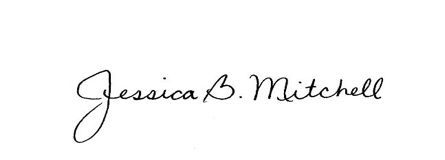 Jessica B. Mitchell